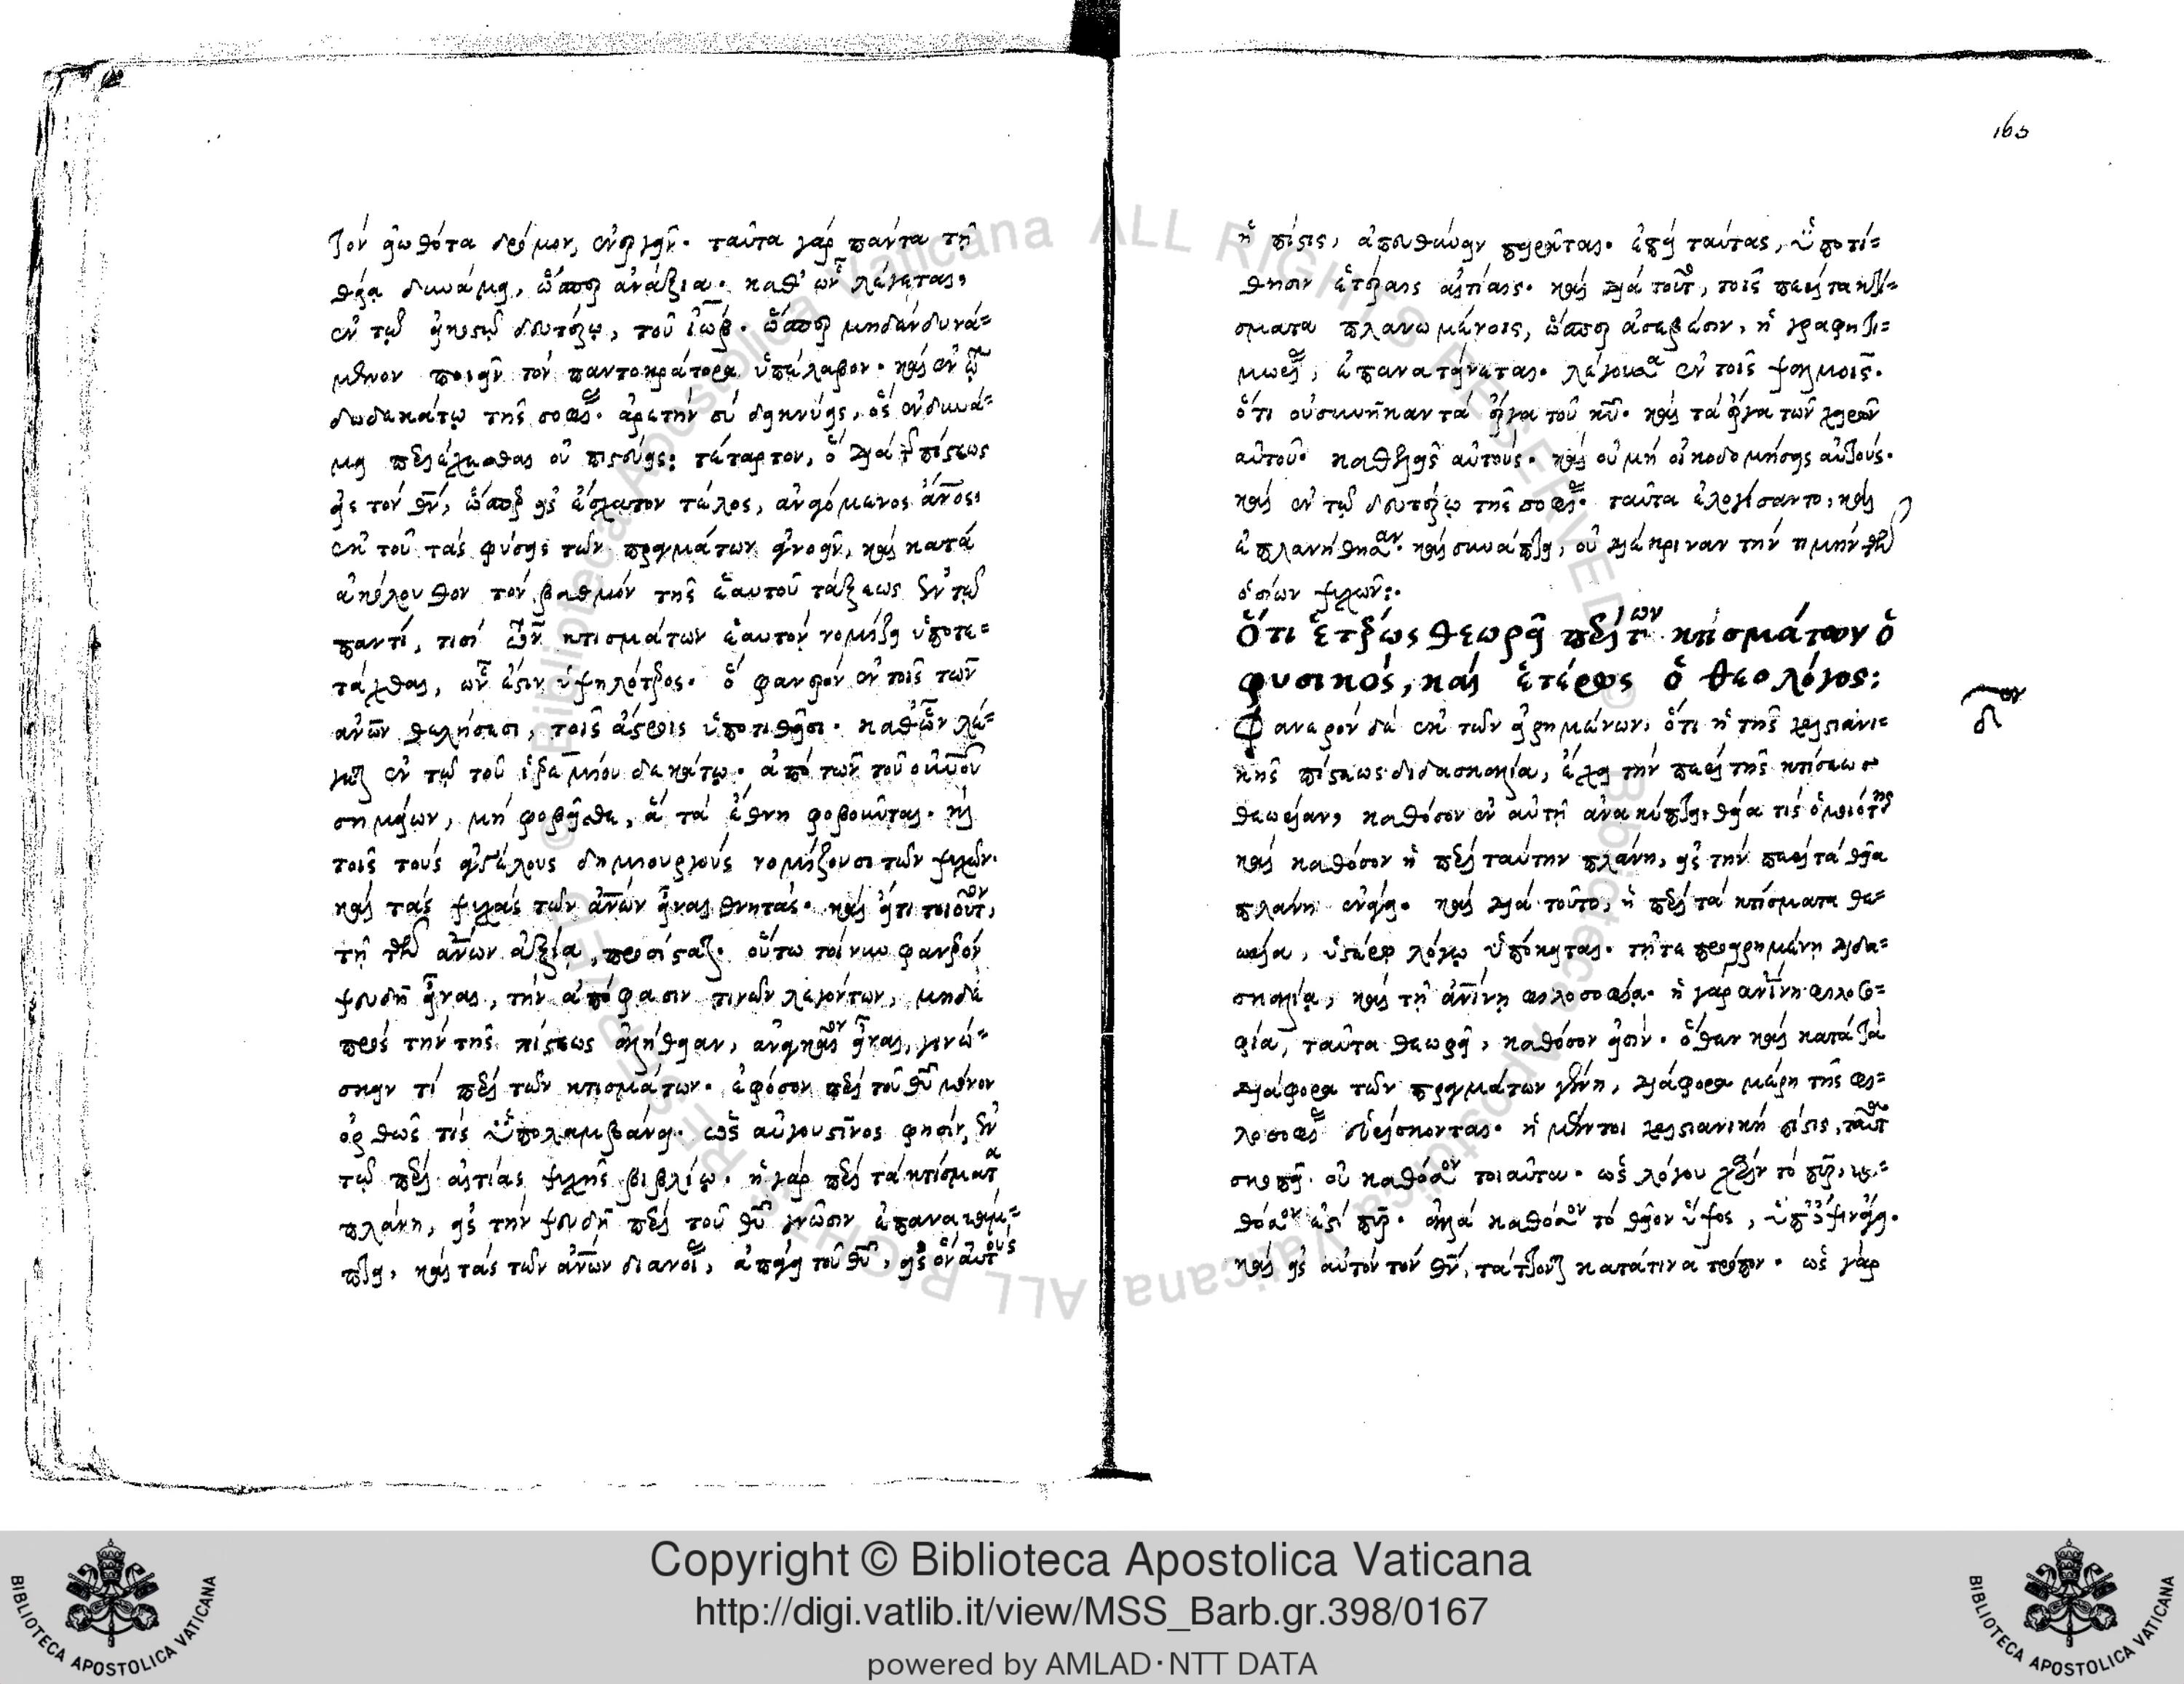 τὸν εἰωθότα δρόμον, ἐνεργεῖν. ταῦτα γὰρ πάντα τῇ
θείᾳ δυνάμει, ὥσπερ ἀνάξια. καθ' ὧν λέγεται,
ἐν τῷ εἰκοστῷ δευτέρῳ, τοῦ ἰὼβ. ὥσπερ μηδὲν δυνά-
μενον ποιεῖν τὸν παντοκράτορα ὑπέλαβον. καὶ ἐν τῷ
δωδεκάτῳ τῆς σοφίας. ἀρετὴν σὺ δεικνύεις, ὃς ἐν δυνά-
μει
τέταρτον, ὁ διὰ τῆς πίστεως
εἰς τὸν θν, ὥσπερ εἰς ἔσχατον τέλος, ἀγόμενος ἄνος,
ἐκ τοῦ τὰς φύσεις τῶν πραγμάτων ἀγνοεῖν, καὶ κατὰ
ἀκόλουθον τὸν βαθμὸν τῆς ἑαυτοῦ τάξεως ἐν τῷ
παντί, τισὶ τῶν κτισμάτων ἑαυτὸν νομίζει ὑποτε-
τάχθαι, ὧν ἐστιν ὑψηλότερος. ὃ φανερὸν ἐν τοῖς τῶν
ἀνων θελήσεσι, τοῖς ἄστροις ὑποτιθεῖσι. καθ' ὧν λέ-
γεται ἐν τῷ τοῦ ἱερεμίου δεκάτῳ. ἀπὸ τῶν τοῦ οὐνου
σημείων, μὴ φοβεῖσθε, ἃ τὰ ἔθνη φοβοῦνται. καὶ
τοῖς τοὺς ἀγγέλους δημιουργοὺς νομίζουσι τῶν ψυχῶν.
καὶ τὰς ψυχὰς τῶν ἀνων εἶναι θνητάς. καὶ εἴτι τοιοῦτον,
τῇ τῶν ἀνων ἀξίᾳ, προσίσταται. οὕτω τοίνυν φανερὸν
ψευδῆ εἶναι, τὴν ἀπόφασιν τινῶν λεγόντων, μηδὲ
πρὸς τὴν τῆς πίστεως ἀλήθειαν, ἀναγκαῖον εἶναι, γινώ-
σκειν τί περὶ τῶν κτισμάτων. ἐφόσον περὶ τοῦ θυ μόνον
ὀρθῶς τίς ὑπολαμβάνει. ὡς αὐγουστῖνος φησὶν, ἐν
τῷ περὶ αἰτίας ψυχῆς βιβλίῳ. ἡ γὰρ περὶ τὰ κτίσματα
πλάνη, εἰς τὴν ψευδῆ περὶ τοῦ θυ γνῶσιν ἐπανακάμ-
πτει, καὶ τὰς τῶν ἀνων διανοίας, ἀπάγει τοῦ θυ, εἰς ὃν αὐτοὺς
165
ἡ πίστις, ἀπευθύνειν πειρᾶται. ἐπεὶ ταύτας, ὑποτί-
θησιν ἑτέραις αἰτίαις. καὶ διὰ τοῦτο, τοῖς περὶ τὰ κτί-
σματα πλανωμένοις, ὥσπερ ἀσεβέσιν, ἡ γραφὴ τι-
μωρίας, ἐπανατείνεται. λέγουσα ἐν τοῖς ψαλμοῖς.
ὅτι οὐ συνῆκαν τὰ ἔργα τοῦ κυ. καὶ τὰ ἔργα τῶν χειρῶν
αὐτοῦ. καθελεῖς αὐτούς. καὶ οὐ μὴ οἰκοδομήσεις αὐτούς.
καὶ ἐν τῷ δευτέρῳ τῆς σοφίας. ταῦτα ἐλογίσαντο, καὶ
ἐπλανήθησαν. καὶ συνάπτει, οὐ διέκριναν τὴν τιμὴν τῶν
ὁσίων ψυχῶν:.
Ὅτι ἑτέρως θεωρεῖ περὶ τῶν κτισμάτων ὁ
φυσικός, καὶ ἑτέρως ὁ θεολόγος:
Φανερὸν δὲ ἐκ τῶν εἰρημένων, ὅτι ἡ τῆς χριστιανι-
κῆς πίστεως διδασκαλία, ἔχει τὴν περὶ τῆς κτίσεως
θεωρίαν, καθόσον ἐν αὐτῇ ἀνακύπτει θεία τις ὁμοιότης
καὶ καθόσον ἡ περὶ ταύτην πλάνη, εἰς τὴν περὶ τὰ θεῖα
πλάνην ἐνάγει. καὶ διὰ τοῦτο, ἡ περὶ τὰ κτίσματα θε-
ωρία, ἑτέρῳ λόγῳ ὑπόκειται. τῇ τε προειρημένῃ διδα-
σκαλίᾳ, καὶ τῇ ἀνίνῃ φιλοσοφίᾳ. ἡ γὰρ ἀνίνη φιλοσο-
φία, ταῦτα θεωρεῖ, καθόσον εἰσίν. ὅθεν καὶ κατὰ τὰ
διάφορα τῶν πραγμάτων γένη, διάφορα μέρη τῆς φι-
λοσοφίας εὑρίσκονται. ἡ μέντοι χριστιανικὴ πίστις, ταῦτα
σκοπεῖ οὐ καθόσον τοιαῦτα. ὡς λόγου χάριν τὸ πῦρ, κα-
θόσον ἐστὶ πῦρ. ἀλλὰ καθόσον τὸ θεῖον ὕψος,
καὶ εἰς αὐτὸν τὸν θν, τάττονται κατά τινα τρόπον. ὡς γὰρ